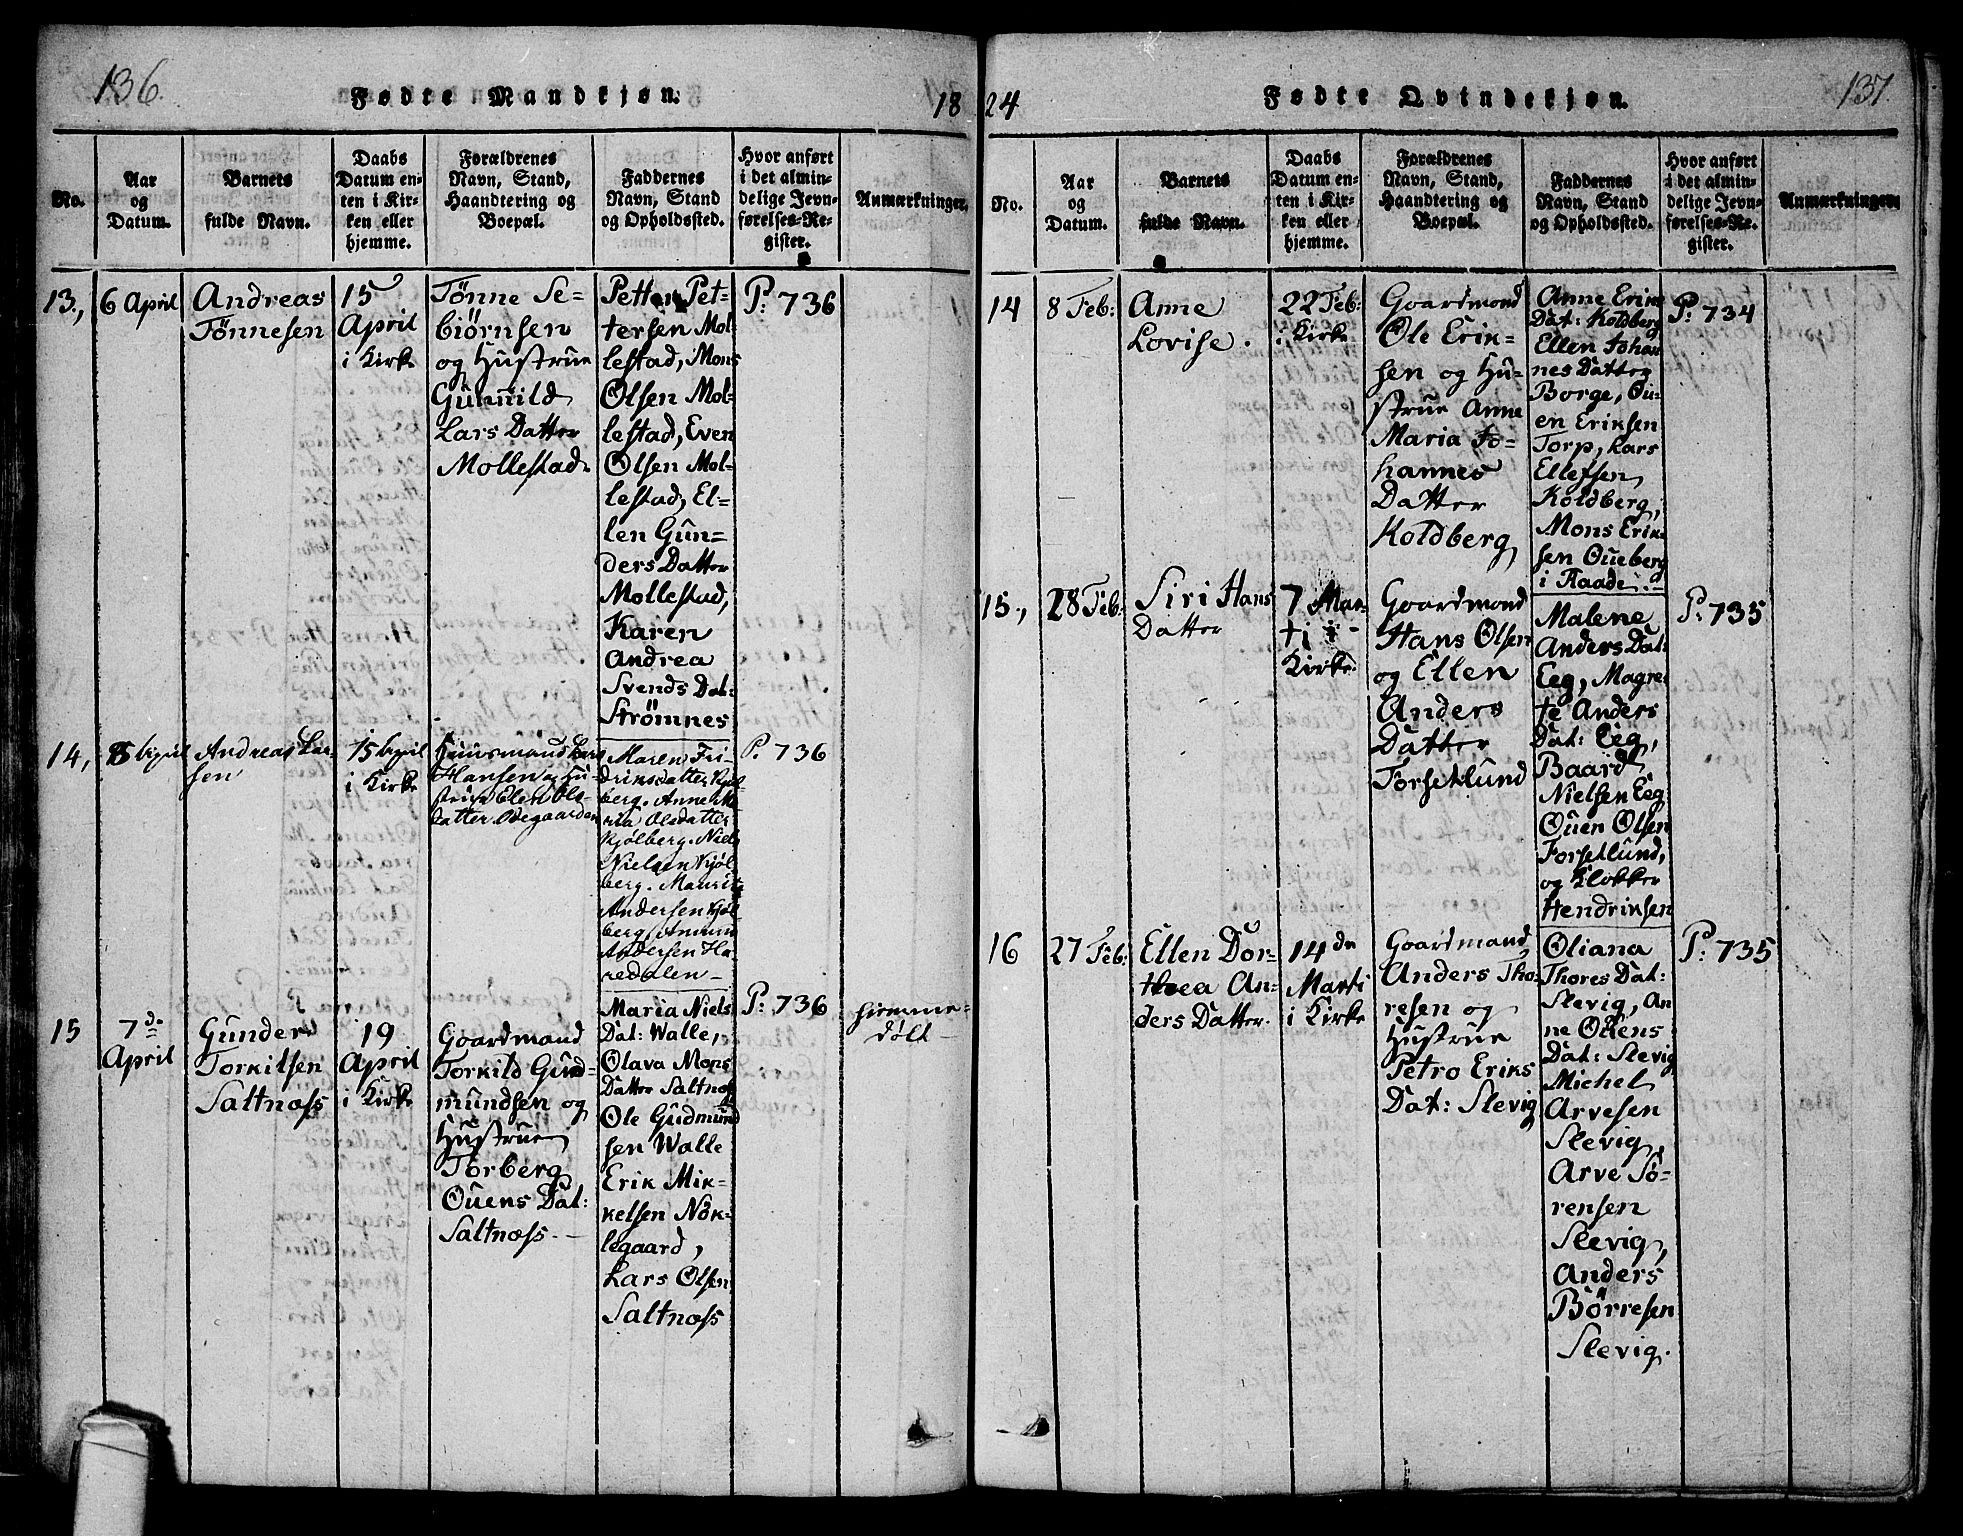 136.
Fødte Mandkjøn.
18
No.
Aar
og
Datum.
Barnets
fulde Navn.
Daabs
Datum en-
ten i Kir-
ken eller
hjemme.
Forældrenes
Navn, Stand,
Haandtering og
Boepæl.
Faddernes
Navn, Stand
og Opholdssted.
Hvor anført
i det almin-
delige Jevn-
førelses-Re-
gister.
Anmærkninger.
13.,
6 April
Andreas
Tönnesen
15
April
i Kirke
Tönne Se-
biörnsen
og Hustrue
Gunnild
Lars Datter
Mollestad
Petter Pet-
tersen Mol-
lestad, Mons
Olsen Mol-
lestad, Even
Olsen Mol-
lestad, El-
len Gun-
ders Datter
Mollestad,
Karen
Andrea
Svends Dat:
Strömnes
P: 736
14,
April
Andreas Lar-
sen
15 April
i Kirke
Huusmand Lars
Hansen og Hu-
strue Elen Ols-
datter Ødegaarden
Maren Fri-
driksdatter Kjöl-
berg. Anne Ma-
ria Olsdatter
Kjølberg. Niels
Nielsen Kjøl-
berg. Mauritz
Andersen Kjøl-
berg. Amund
Andersen Ha-
redalen
P. 736
15
7de
April
Gunder
Torkilsen
Saltnæss
19
April
i Kirke
Goardmand
Torkild Gud-
mundsen og
Hustrue
Torberg
Ouens Dat:
Saltnæss.
Maria Niels
Dat: Walle,
Olava Mons
Datter Saltnæss
Ole Gudmund
sen Walle
Erik Mik-
kelsen Nök-
legaard,
Lars Olsen
Saltnæss
P: 736
hiemme-
döbt
24
Fødte Qvindekjøn.
137.
No.
Aar
og
Datum.
Barnets
fulde Navn.
Daabs
Datum en-
ten i Kir-
ken eller
hjemme.
Forældrenes
Navn, Stand,
Haandtering og
Boepæl.
Faddernes
Navn, Stand
og Opholdssted.
Hvor anført
i det almin-
delige Jevn-
førelses-Re-
gister.
Anmærkninger.
14
8 Feb:
Anne
Lovise.
22 Feb:
i Kirke
Goardmand
Ole Erik-
sen og Hu-
strue Anne
Maria Jo-
hannes
Datter
Koldberg
Anne Eriks
Dat: Koldberg
Ellen Johan
nes Datter
Borge, Ou-
en Eriksen
Torp, Lars
Ellefsen
Koldberg,
Mons Erik-
sen Oueberg
i Raade.
P: 734
15.,
28 Feb:
Siri Hans
Datter
7 Mar-
ti i
Kirke.
Goardmand
Hans Olsen
og Ellen
Anders
Datter
Forsetlund
Malene
Anders Dat:
Eeg, Magre
te Anders
Dat: Eeg,
Baard
Nielsen Eeg
Ouen Olsen
Forsetlund,
og Klokker
Hendriksen
P: 735
16
27 Feb:
Ellen Dor-
thea An-
ders Datter.
14dn
Marti
i Kirke
Goardmand
Anders Tho-
resen og
Hustrue
Petro Eriks
Dat: Slevig
Oliana
Thores Dat:
Slevig, An
ne Ouens
Dat: Slevig
Michel
Arvesen
Slevig,
Arve Sö-
rensen
Slevig,
Anders
Börresen
Slevig.
P: 735